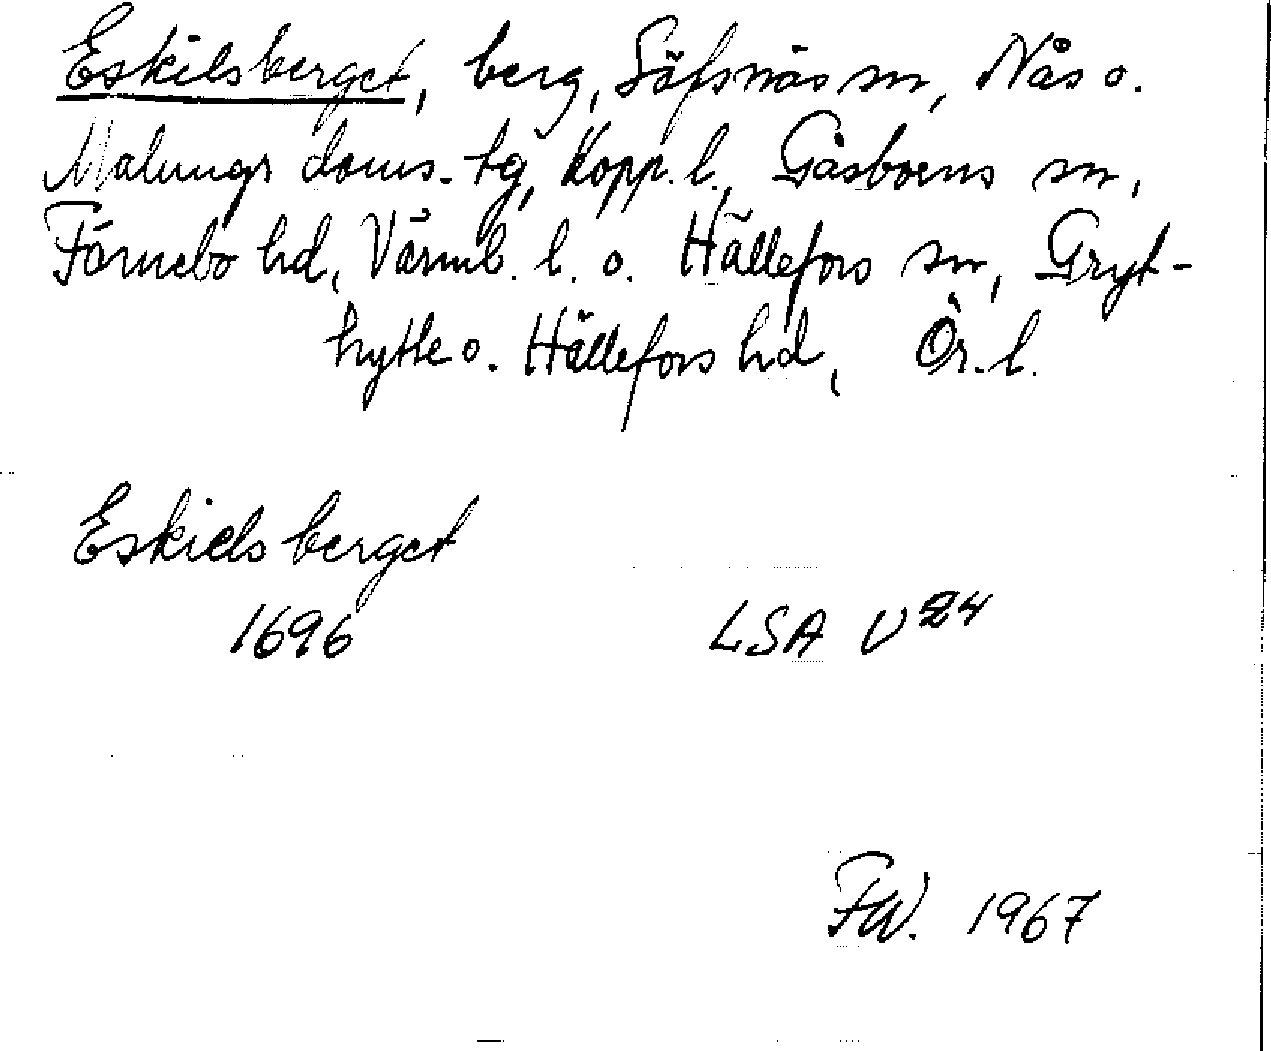 Eskilsberget, berg, Säfsnäs sn, Nås o.
Malungs doms. tg, Kopp. l., Gåsborns sn,
Färnebo hd, Värml. l. o. Hällefors sn, Gryt-
hytte o. Hällefors hd, Ör. l.
Eskielsberget
1696 LSA U24
FW. 1967